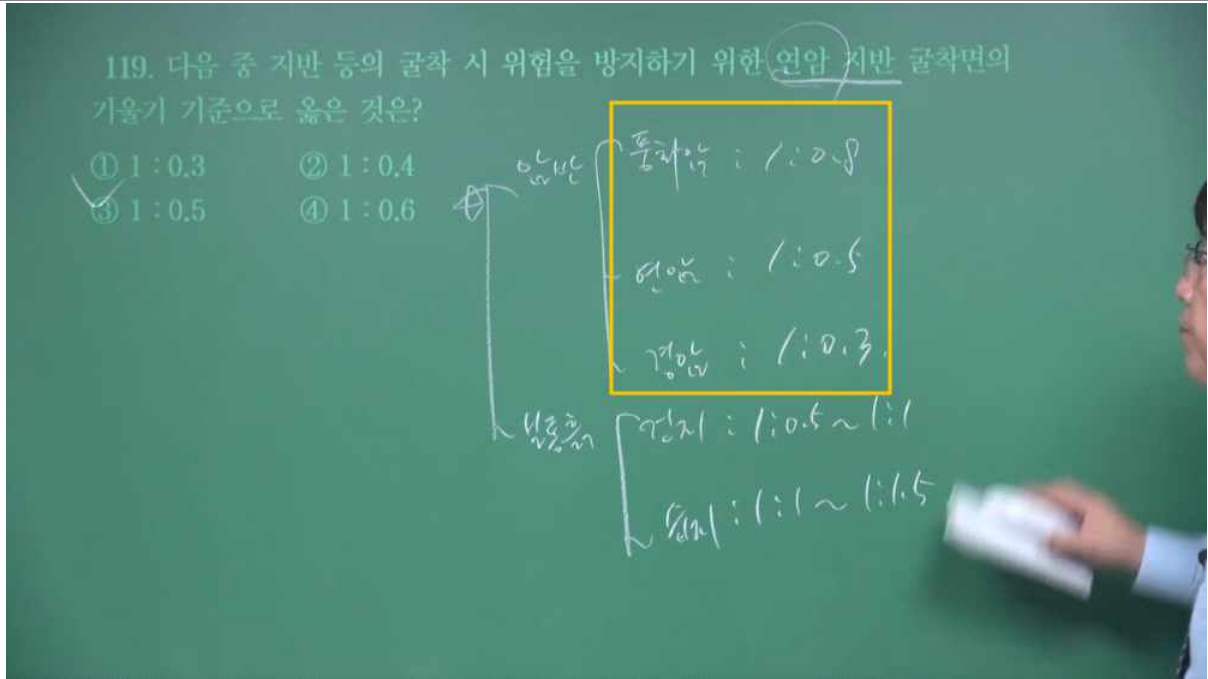 119. 다음 중 지반 등의 굴착 시 위험을 방지하기 위한 연암 지반 굴착면의
기울기 기준으로 옳은 것은?
① 1 : 0.3 ② 1 : 0.4
③ 1 : 0.5 ④ 1 : 0.6
암반
풍화암 : 1:0.8
연암 : 1:0.5
경암 : 1:0.3.
보통흙
건지 : 1:0.5 ~ 1:1
습지 : 1:1 ~ 1:1.5